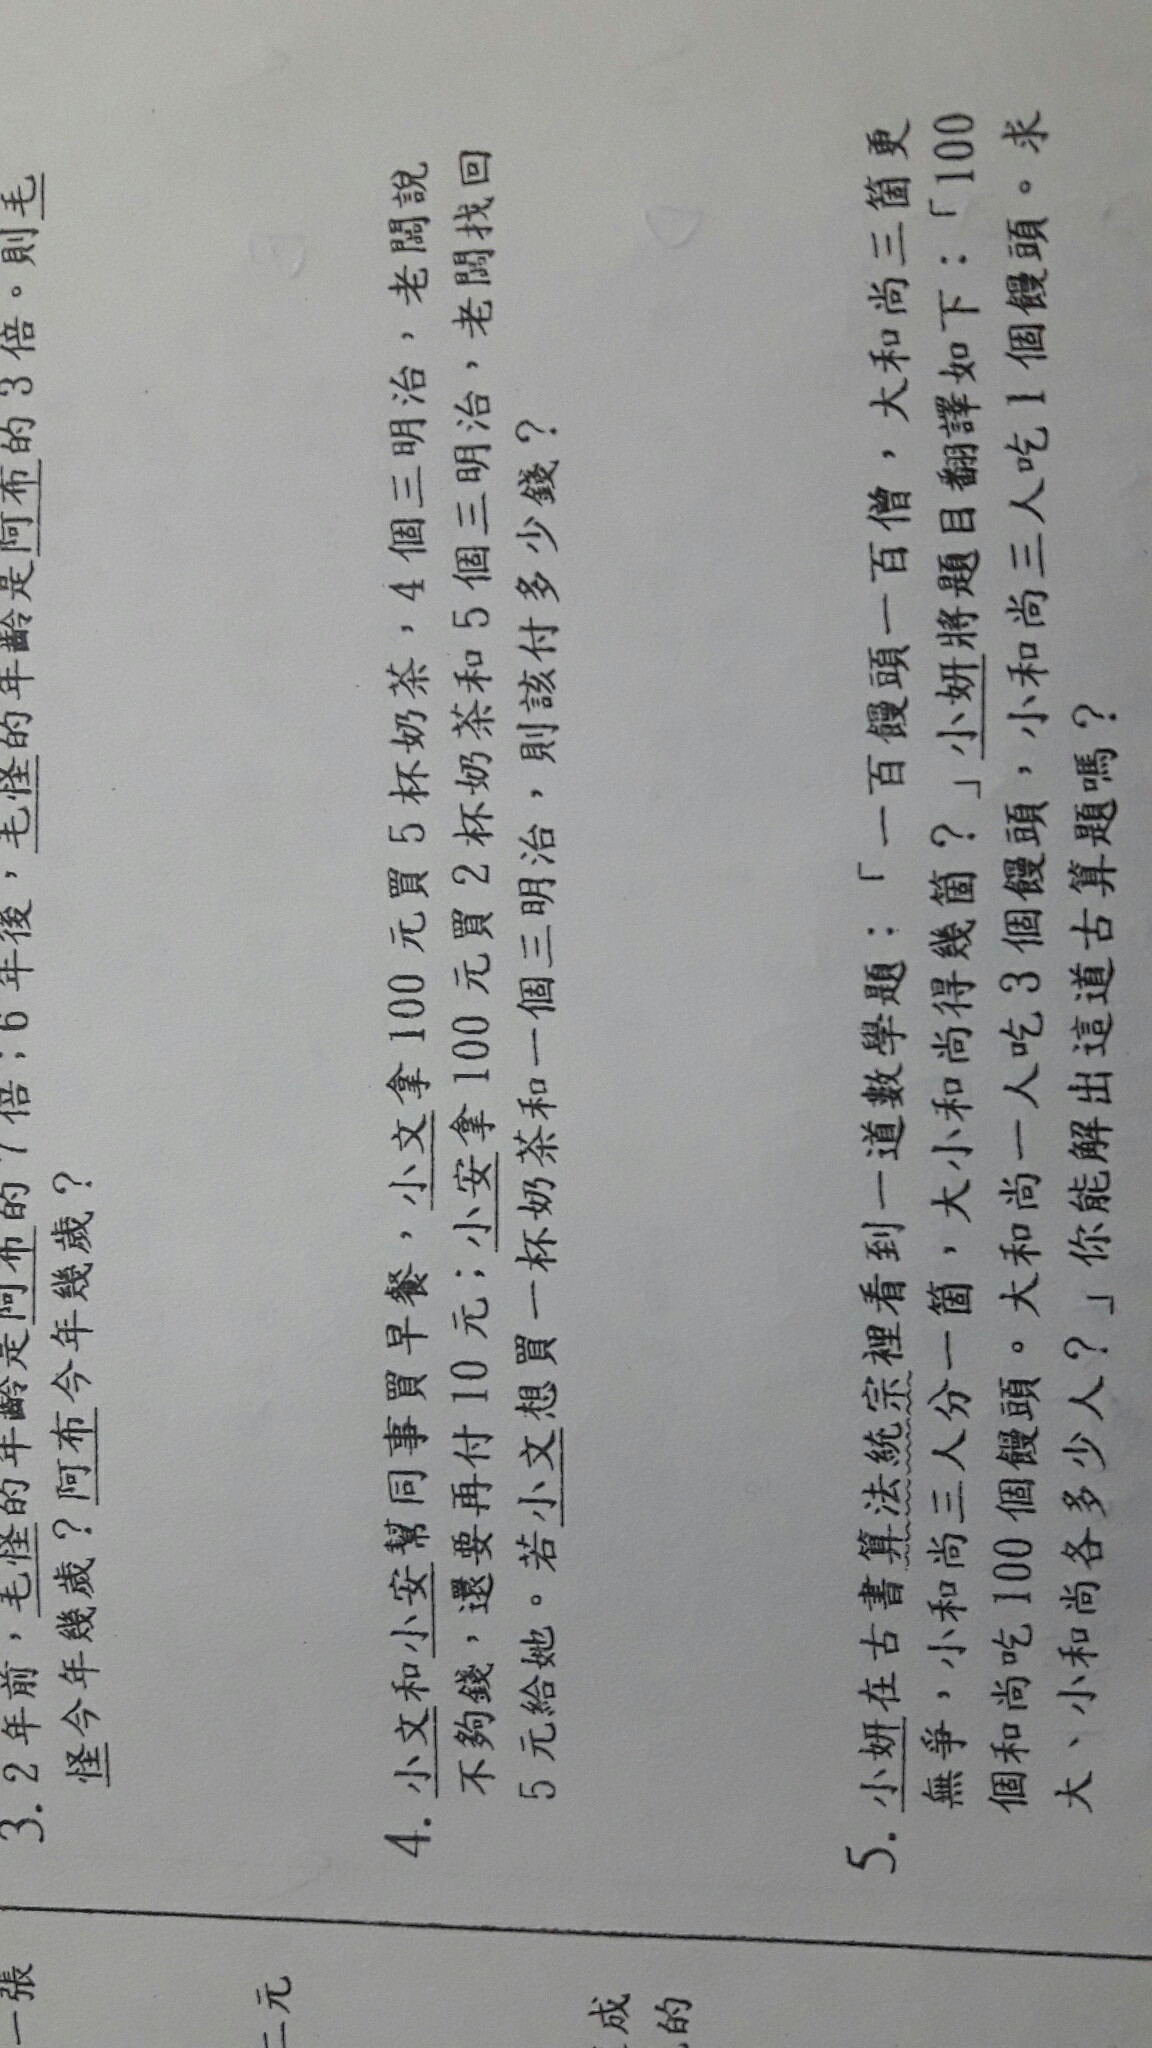 3. 2年前，毛怪的年齡是阿布的7倍；6年後，毛怪的年齡是阿布的3倍。則毛
怪今年幾歲？阿布今年幾歲？
4. 小文和小安幫同事買早餐，小文拿100元買5杯奶茶，4個三明治，老闆說
不夠錢，還要再付10元；小安拿100元買2杯奶茶和5個三明治，老闆找回
5元給她。若小文想買一杯奶茶和一個三明治，則該付多少錢？
5. 小妍在古書算法統宗裡看到一道數學題：「一百饅頭一百僧，大和尚三箇更
無爭，小和尚三人分一箇，大小和尚得幾箇？」小妍將題目翻譯如下：「100
個和尚吃100個饅頭。大和尚一人吃3個饅頭，小和尚三人吃1個饅頭。求
大、小和尚各多少人？」你能解出這道古算題嗎？
一張
二元
成
的